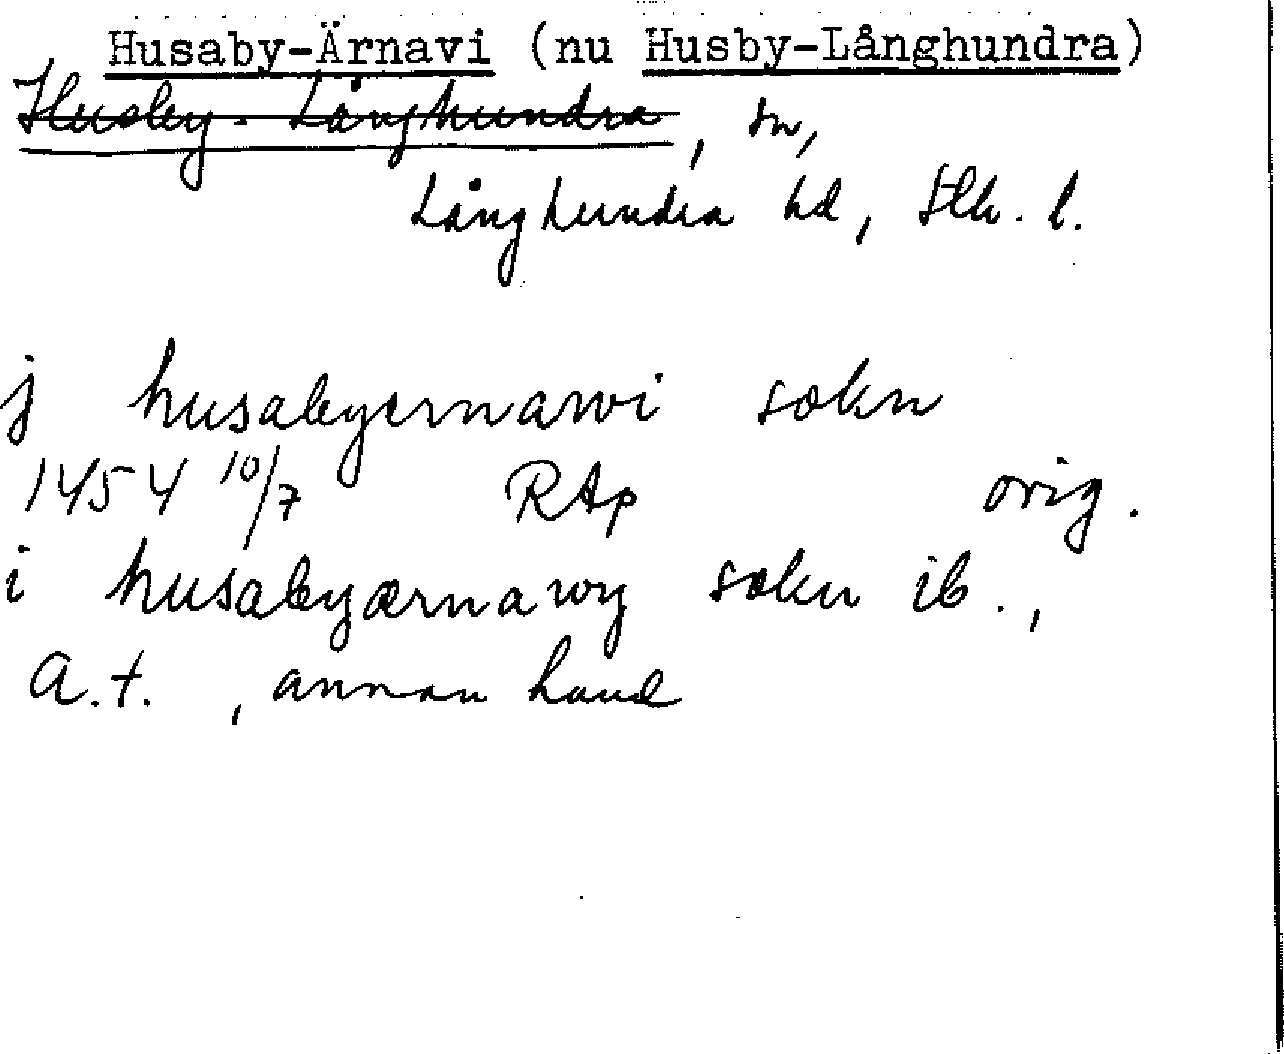 Husaby-Ärnavi (nu Husby-Långhundra)
Husby-Långhundra, sn,
Långhundra hd, Sth. l.
j husabyernawi sokn
1454 10/7 RAp orig.
i husabyærnawy sokn ib.,
a.t., annan hand